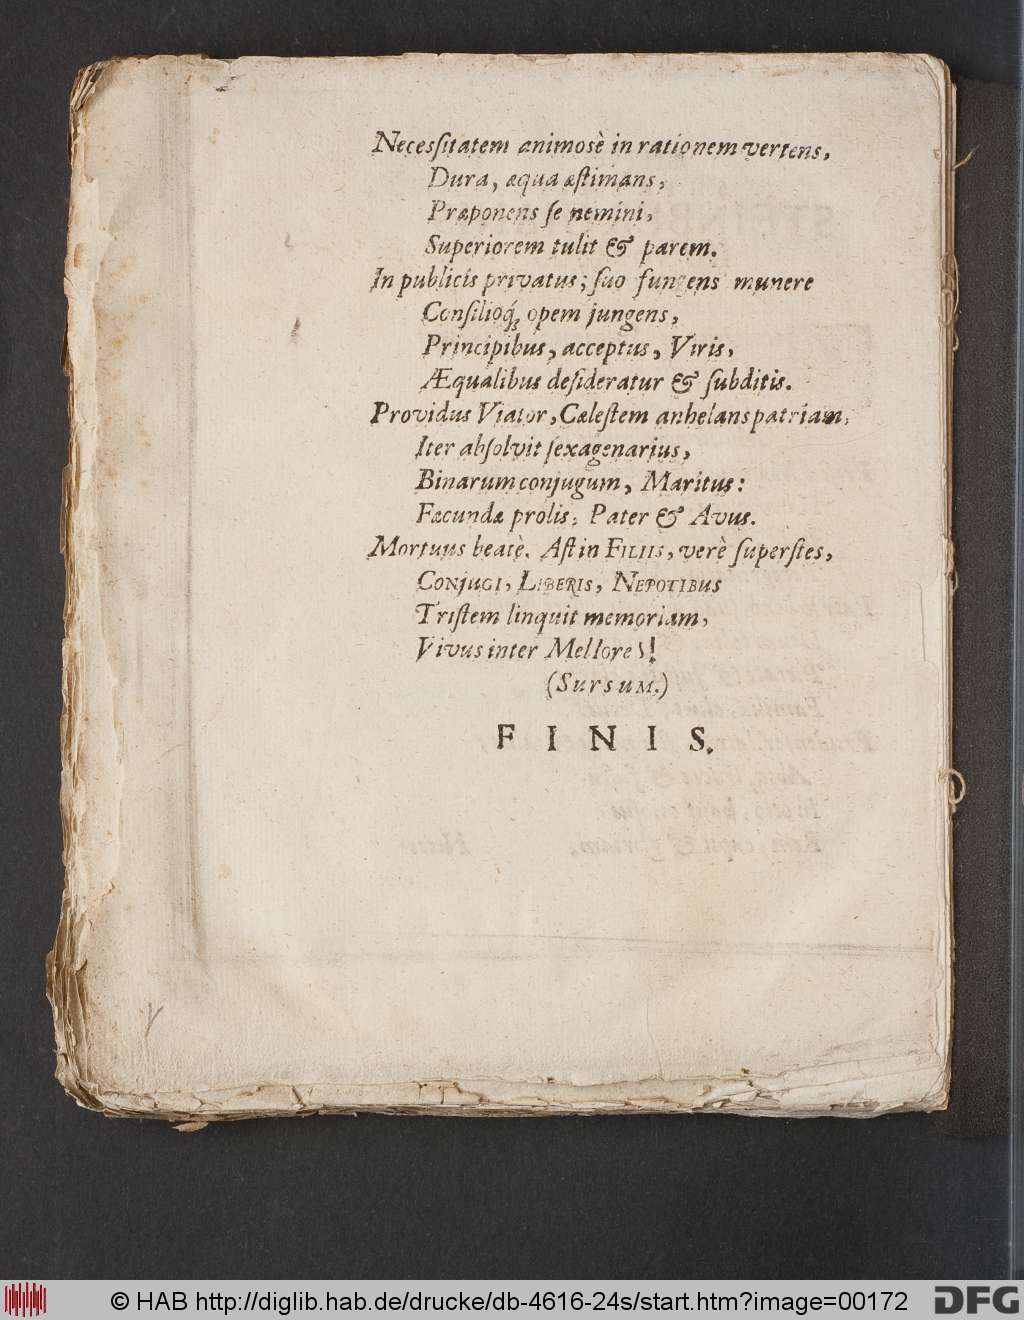 Necesſitatem animosè in rationem vertens,
Dura, æqua æſtimans,
Præponens ſe nemini,
Superiorem tulit & parem.
In publicis privatus; ſuo fungens munere
Conſilioq́; opem jungens,
Principibus, acceptus, Viris,
Æqualibus deſideratur & ſubditis.
Providus Viator, Cæleſtem anhelans patriam,
Iter abſolvit ſexagenarius,
Binarum conjugum, Maritus:
Fæcundæ prolis, Pater & Avus.
Mortuus beatè. Aſt in FILIIS, verè ſuperſtes,
CONJUGI, LIBERIS, NEPOTIBUS
Triſtem linquit memoriam,
Vivus inter Melloreſ!
(SursuM.)
FINIS.
© HAB http://diglib.hab.de/drucke/db-4616-24s/start.htm?image=00172
DFG